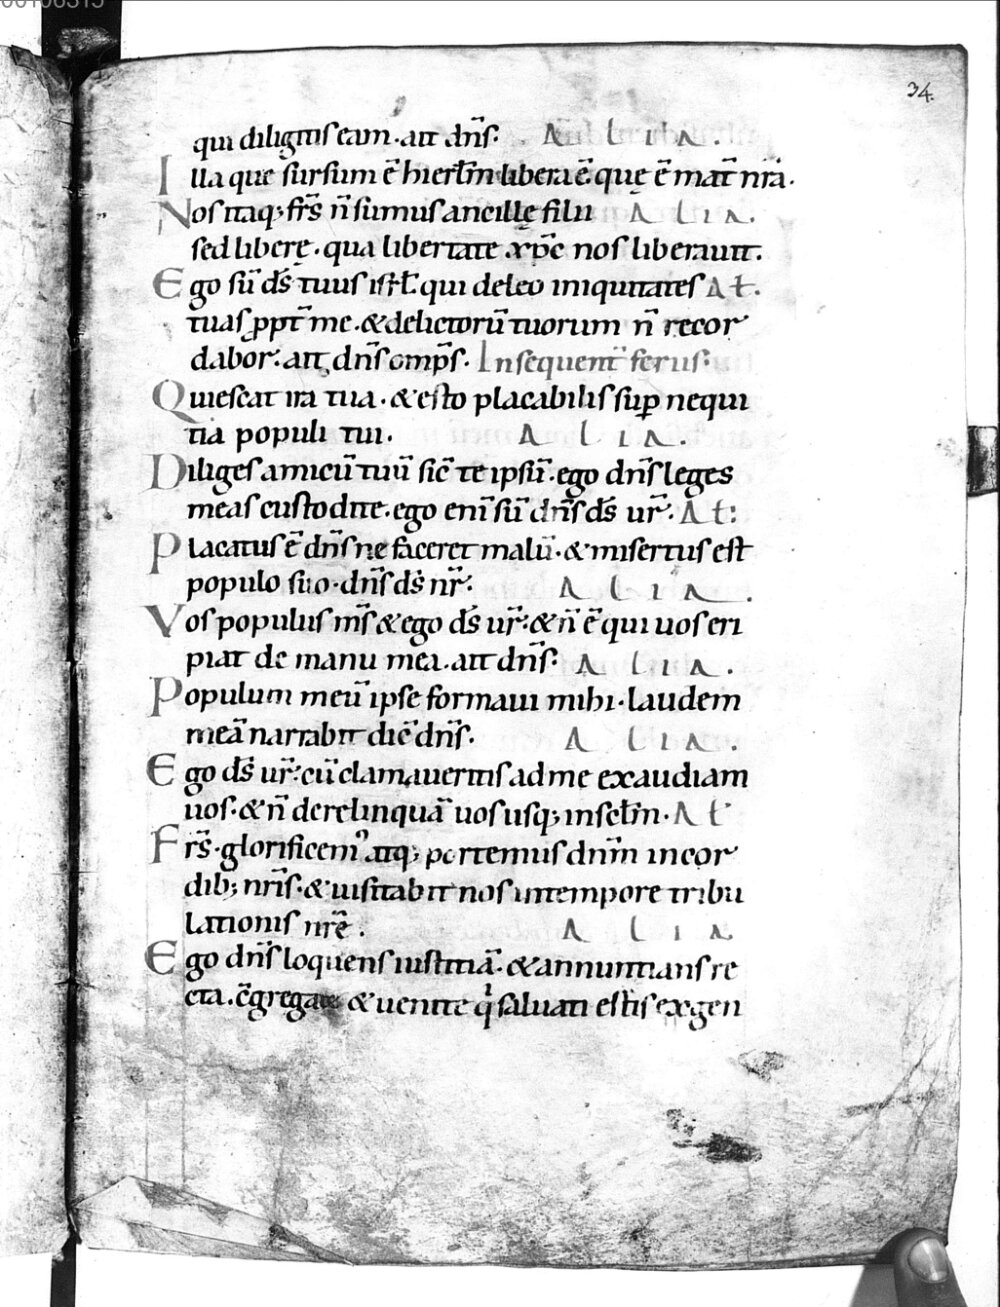 00106315
34.
qui diligitis eam. ait dn̄s. A L I A .
Illa que sursum ē hierłm libera ē quę ē mat̄ nr̄a.
Nos itaq; fr̄s n̄ sumus ancillę filii A L I A .
sed liberę. qua libertate xp̄c nos liberauit.
Ego sū ds̄ tuus isr̄ł. qui deleo iniquitates A ł.
tuas ppt̄ me. & delictorū tuorum n̄ recor
dabor. ait dn̄s omp̄s. In sequent̄ feriis.
Quiescat ira tua. & esto placabilis sup̱ nequi
tia populi tui. A L I A .
Diliges amicū tuū sic̄ te ipsū. ego dn̄s leges
meas custodite. ego enī sū dn̄s ds̄ ur̄. A ł:
Placatus ē dn̄s ne faceret malū. & misertus est
populo suo. dn̄s ds̄ nr̄. A L I A .
Vos populus ms̄ & ego ds̄ ur̄. & n̄ ē qui uos eri
piat de manu mea. ait dn̄s. A L I A .
Populum meū ipse formaui mihi. laudem
meā narrabit dic̄ dn̄s. A L I A .
Ego ds̄ ur̄. cū clamaueritis ad me exaudiam
uos. & n̄ derelinquā uos usq; in sc̄łm. A ł
Frs̄. glorificem' atq; portemus dn̄m in cor
dib; nr̄is. & uisitabit nos in tempore tribu
lationis nr̄ę. A L I A
Ego dn̄s loquens iustitiā. & annuntians re
cta. c̄gregate & uenite qi saluati estis ex gen